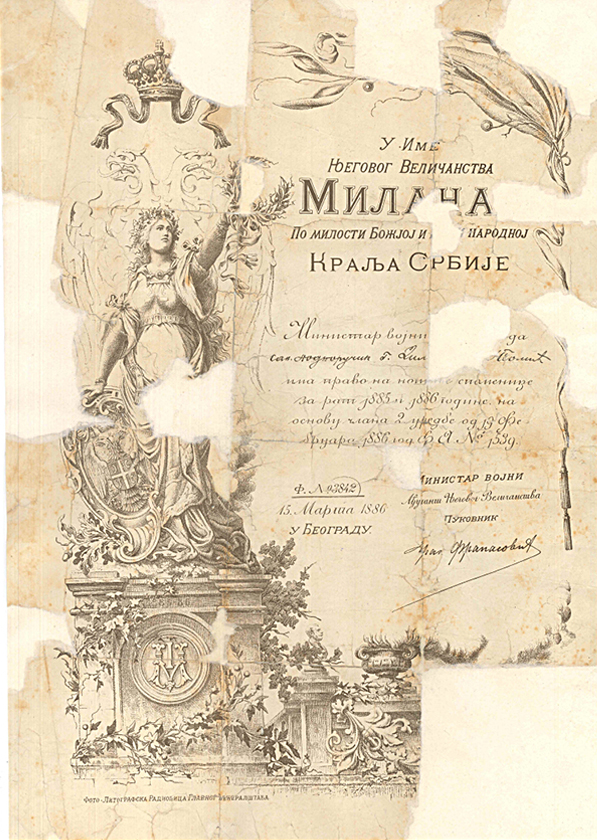 У ИМЕ
ЊЕГОВОГ ВЕЛИЧАНСТВА
МИЛАНА
ПО МИЛОСТИ БОЖЈОЈ И НАРОДНОЈ
КРАЉА СРБИЈЕ
Министар војни да
потпоручик г.
има право на споменице
за рат 1885 и 1886 године, на
основу члана 2 уредбе од 13 Фе-
бруара 1886 год. ФА № 1539.
МИНИСТАР ВОЈНИ
Ађутант Његовог Величанства
ПУКОВНИК
15. МАРТА 1886
У БЕОГРАДУ.
М
ФОТО-ЛИТОГРАФСКА РАДИОНИЦА ГЛАВНОГ ЂЕНЕРАЛШТАБА